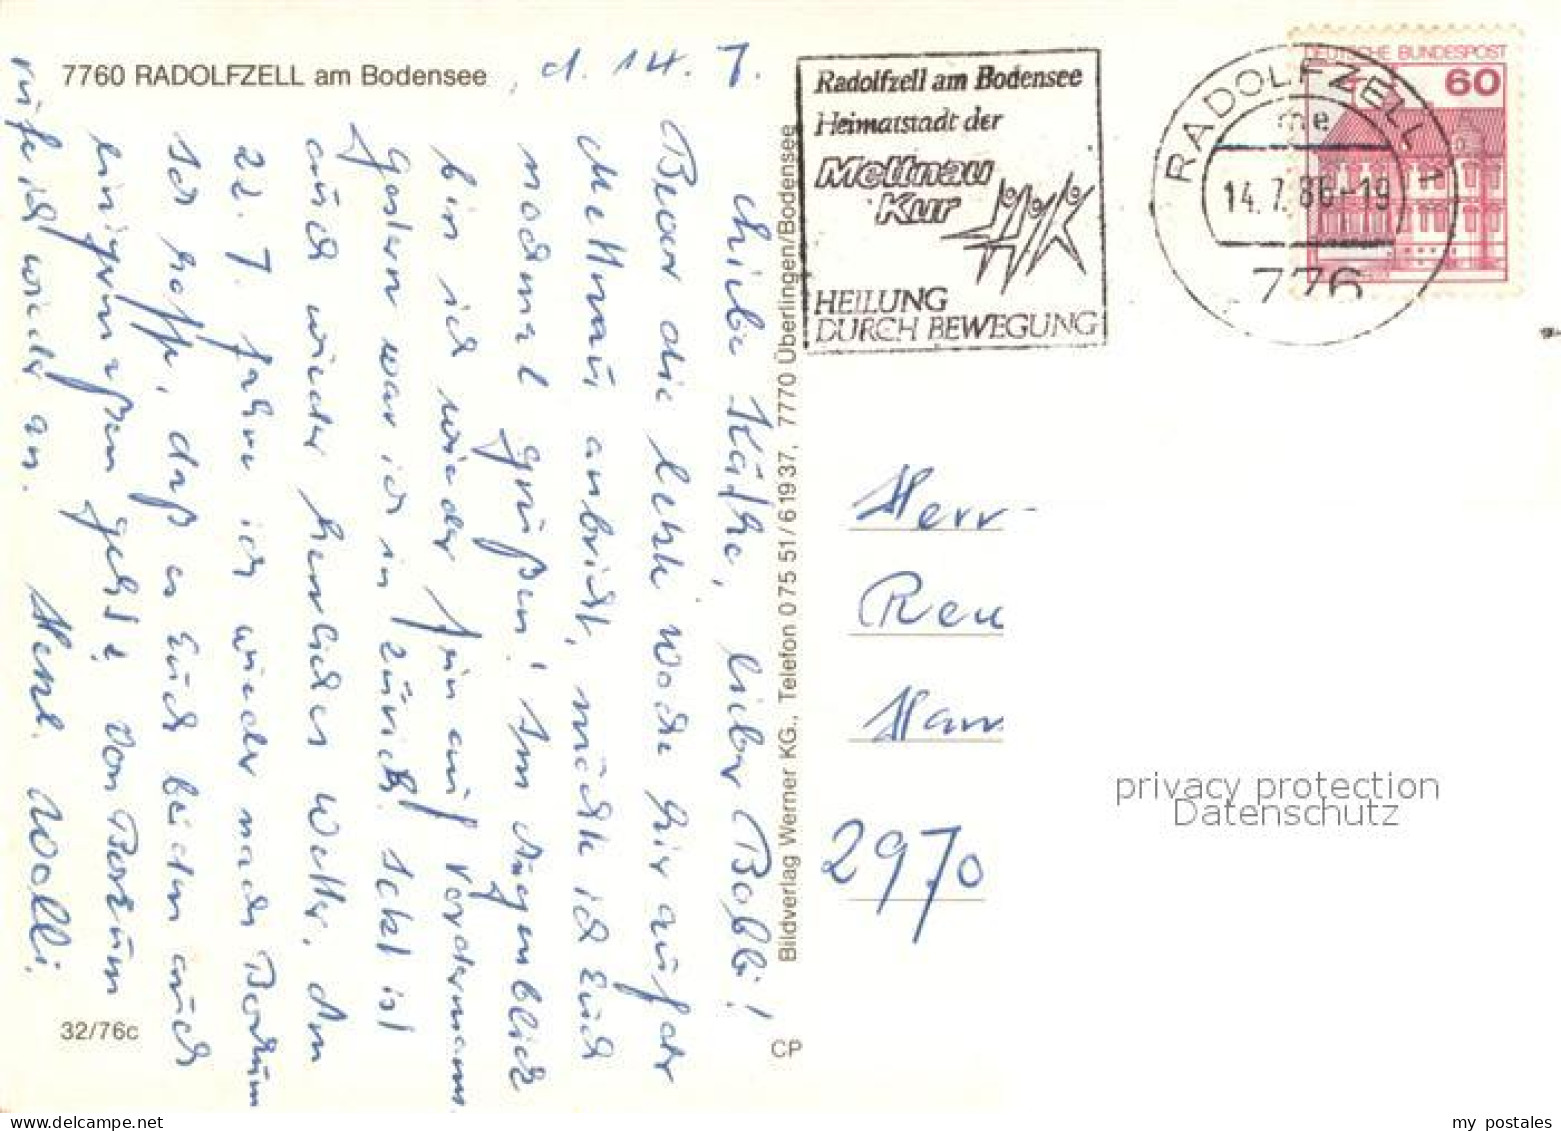 7760 RADOLFZELL am Bodensee
, d. 14. 7.
Liebe Käthe, lieber Bobbi!
Bevor die letzte Woche hier auf der
Mettnau anbricht, möchte ich Euch
nochmal grüßen! Im Augenblick
bin ich wieder fein auf Vordermann.
Gestern war ich in Zürich. Jetzt ist
auch wieder herrliches Wetter. Am
22. 7. fahre ich wieder nach Borkum
Ich hoffe, daß es Euch beiden auch
einigermaßen geht! Von Borkum
rufe ich wieder an. Herzl. Wolli.
32/76c
CP
Bildverlag Werner KG., Telefon 075 51/6 19 37, 7770 Überlingen/Bodensee
Radolfzell am Bodensee
Heimatstadt der
Mettnau
Kur
HEILUNG
DURCH BEWEGUNG
RADOLFZELL 1
me
14.7.86-19
776
DEUTSCHE BUNDESPOST
60
Herr
Reu
Han
2970
privacy protection
Datenschutz
my postales